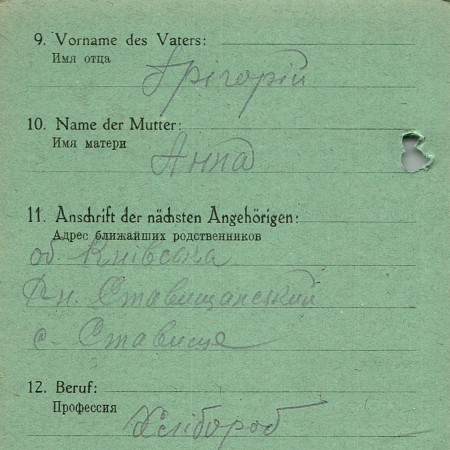 9. Vorname des Vaters:
Имя отца
Грігорій
10. Name der Mutter:
Имя матери
Анна
11. Anschrift der nächsten Angehörigen:
Адрес ближайших родственников
об. Київська
Рн. Ставищанський
с. Ставище
12. Beruf:
Профессия
Хлібороб